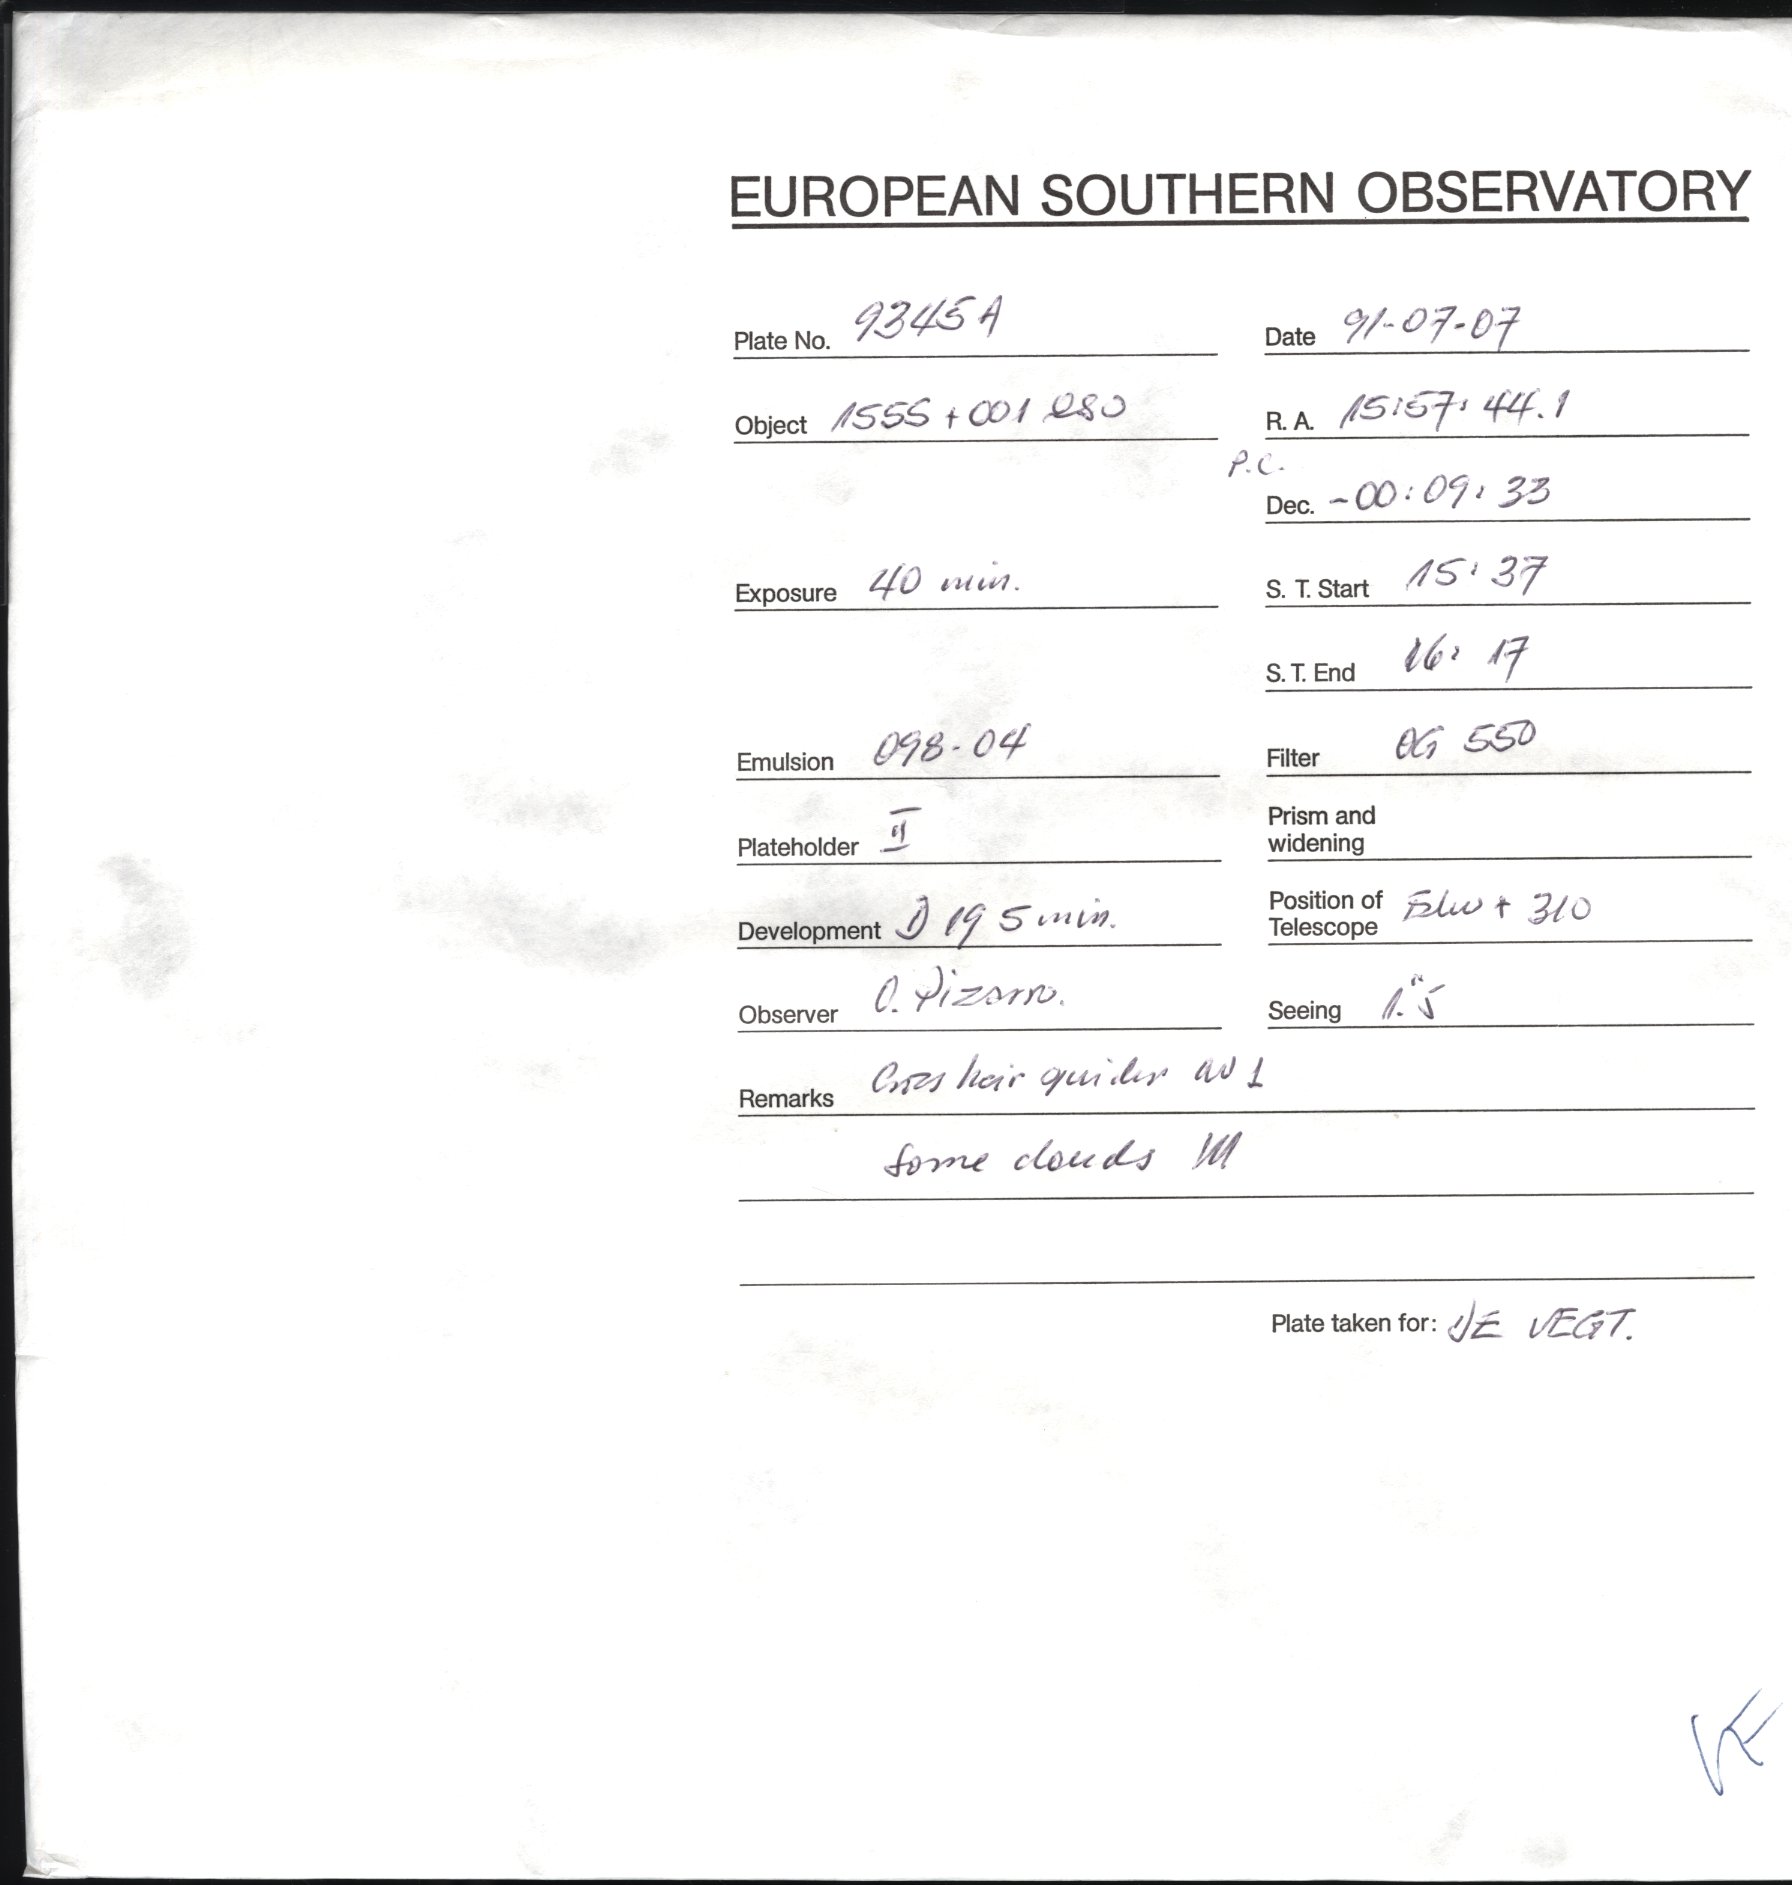 EUROPEAN SOUTHERN OBSERVATORY
Plate No. 9345A
Date 91-07-07
Object 1555+001 QSO
R. A. 15:57:44.1
P.C.
Dec. -00:09:33
Exposure 40 min.
S. T. Start 15:37
S. T. End 16:17
Emulsion 098-04
Filter OG 550
Plateholder II
Prism and
widening
Development D 19 5 min.
Position of
Telescope + 310
Observer O. Pizarro.
Seeing 1."5
Remarks Cross hair guider 1
Some clouds !!!
Plate taken for: DE VEGT.